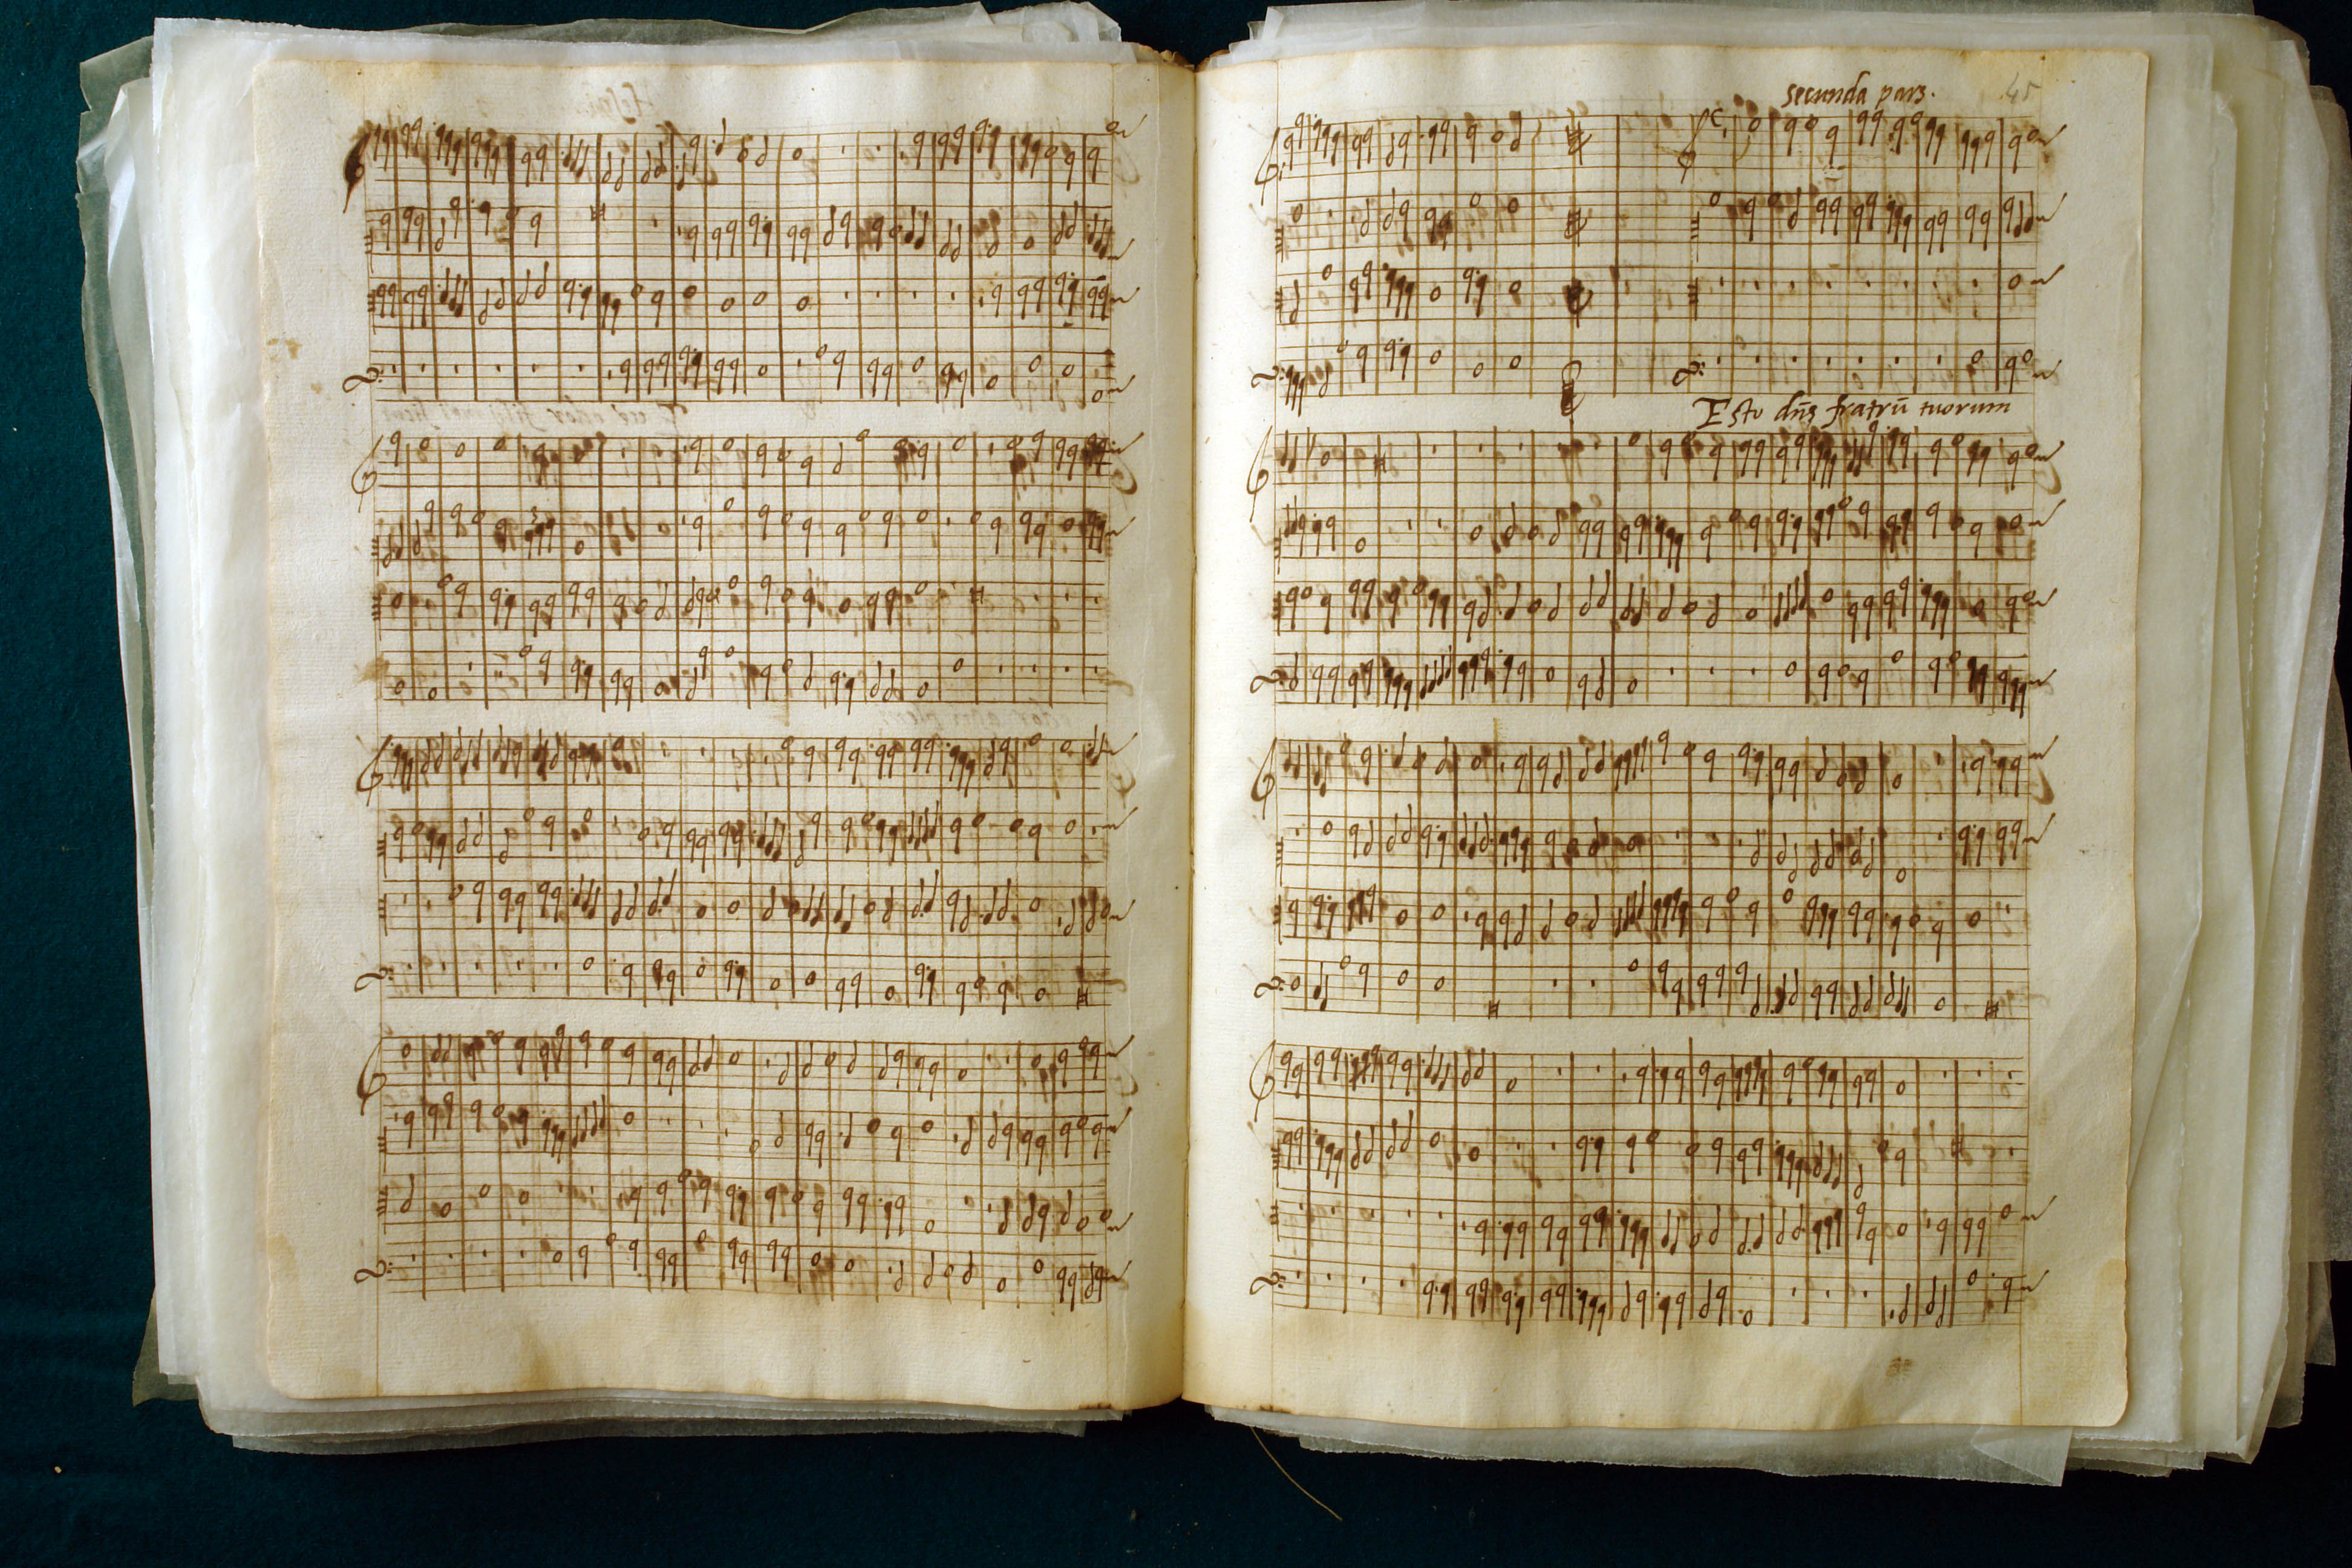 secunda pars.
45
Esto dñs fratrũ tuorum